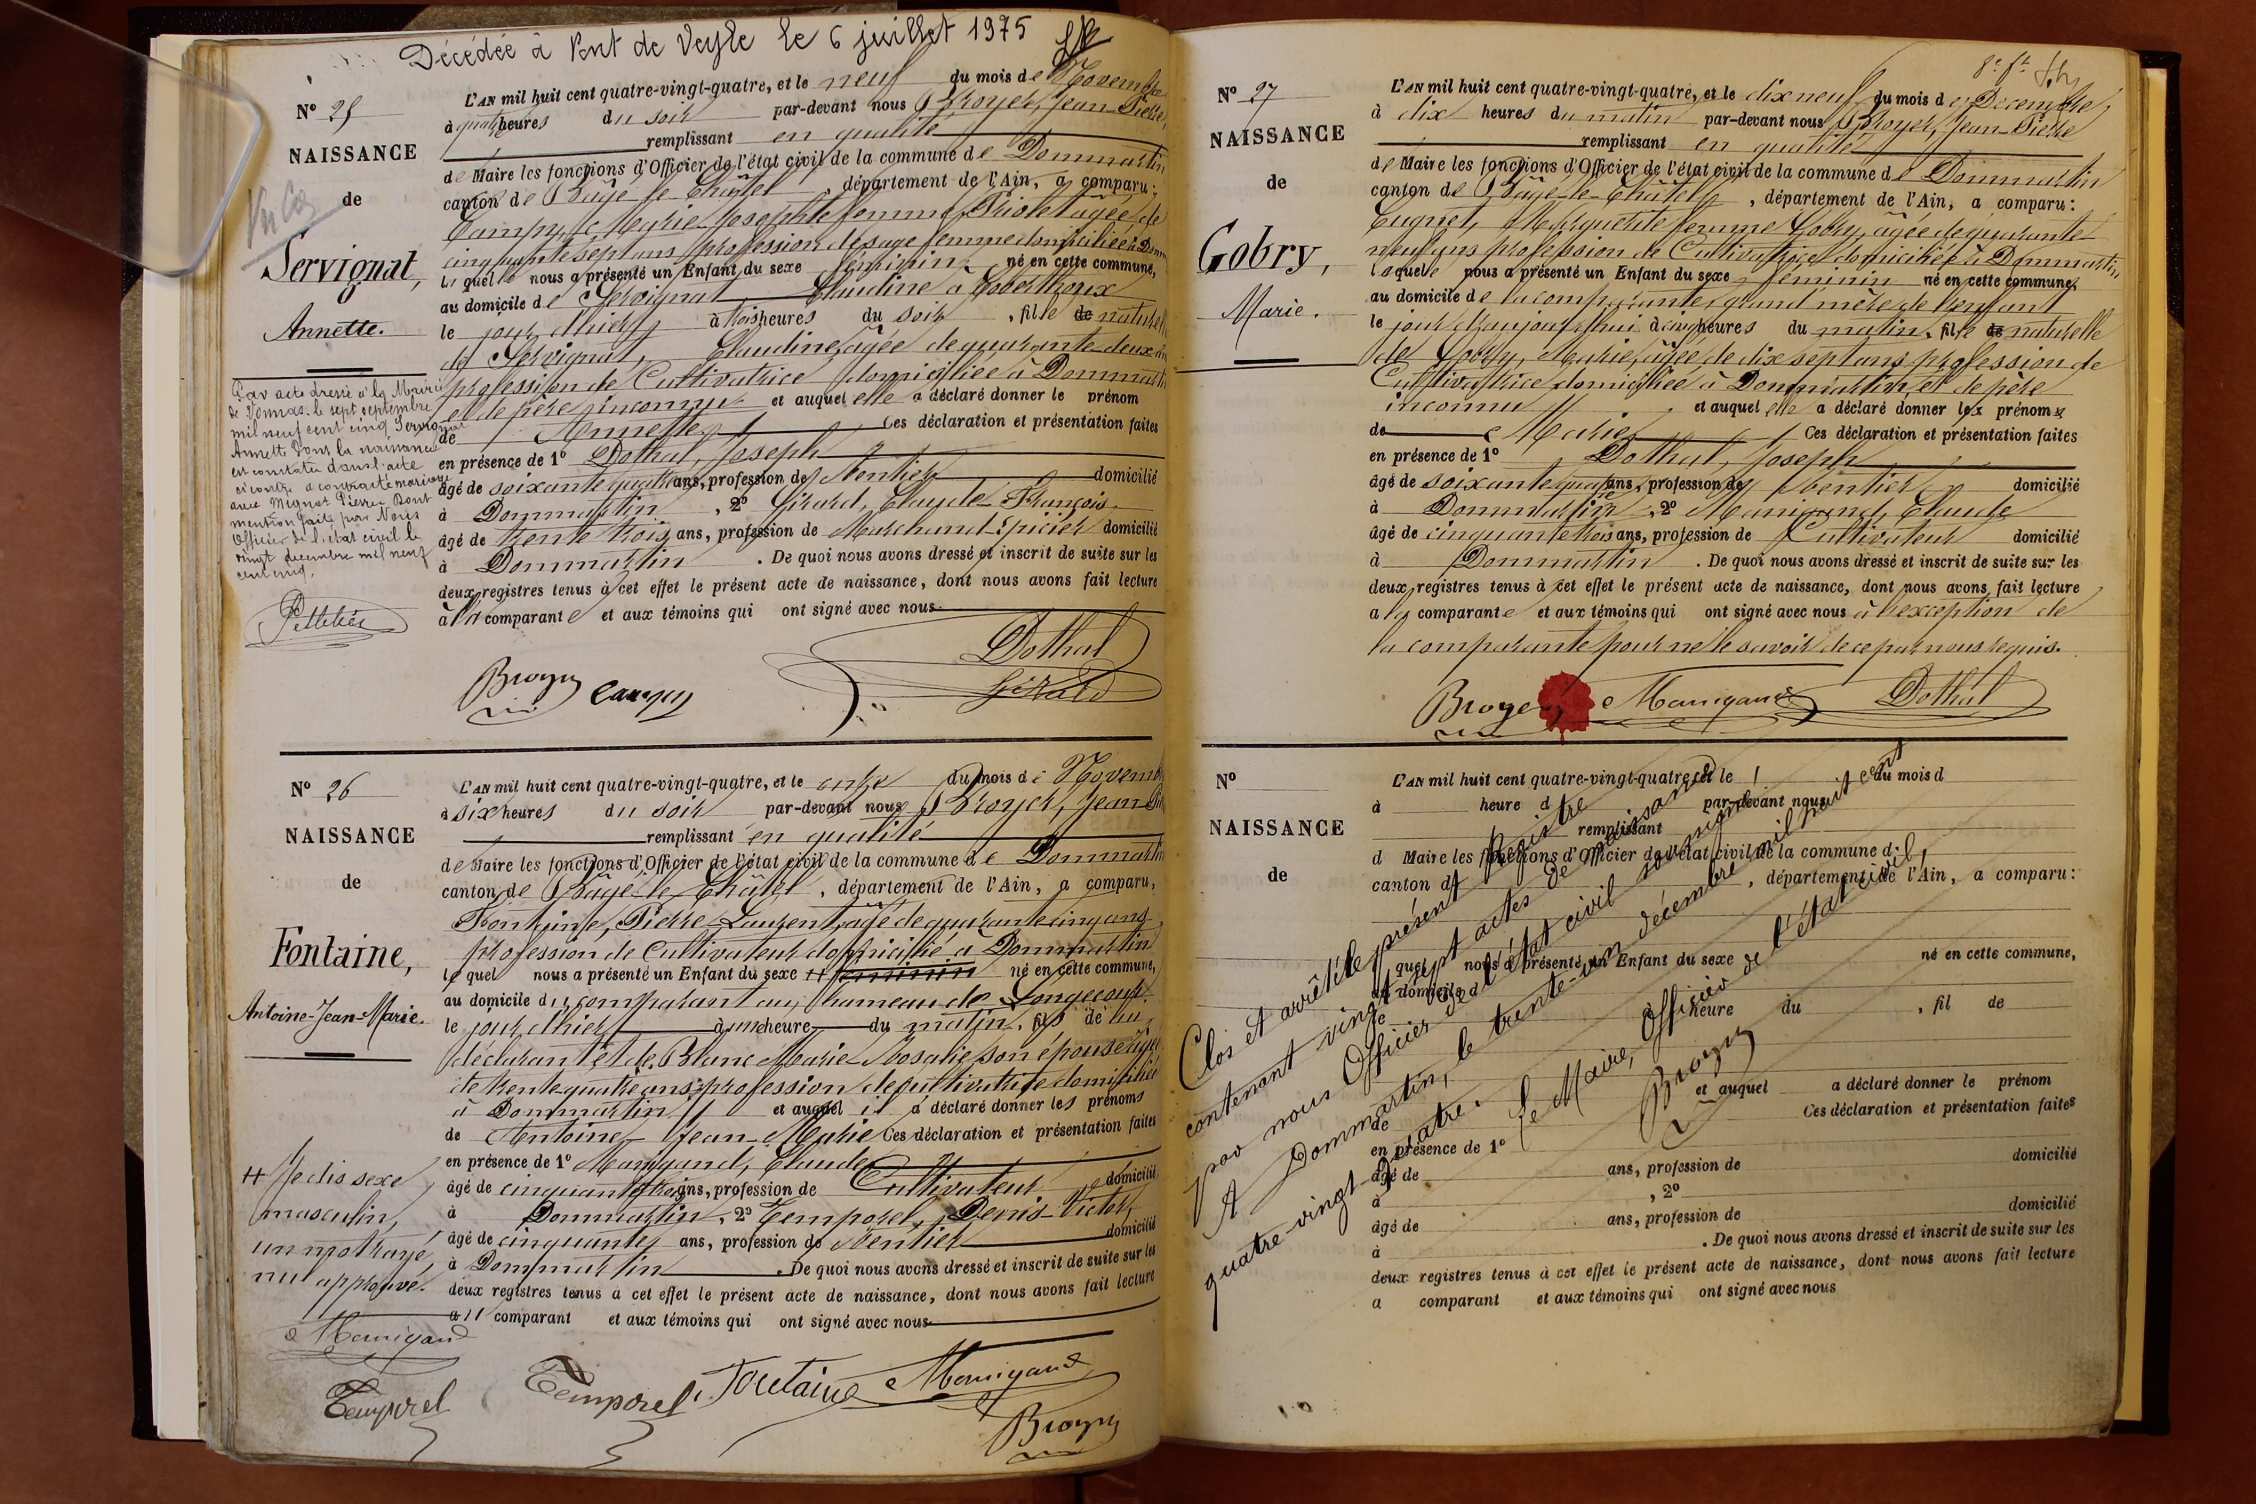 Décédée à Pont de Veyle le 6 juillet 1975
N° 25
NAISSANCE
de
Servignat,
Annette.
Par acte dressé à la Mairie
de le sept septembre
mil neuf cent cinq Servignat
Annette dont la naissance
est constatée dans l'acte
ci contre a contracté mariage
avec Mignot Pierre Dont
mention faite par Nous
Officier de l'état civil le
vingt décembre mil neuf
cent cinq.
L'AN mil huit cent quatre-vingt-quatre, et le neuf du mois de Novembre
à quatre heures du soir par-devant nous Broyer, Jean-Pierre,
remplissant en qualité
de Maire les fonctions d'Officier de l'état civil de la commune de Dommartin
canton de Bâgé-le-Châtel, département de l'Ain, a comparu:
Marie Josephte femme âgée de
cinquante sept ans profession de sage femme domiciliée à Domm
laquelle nous a présenté un Enfant du sexe féminin né en cette commune,
au domicile de Servignat Claudine à
le jour d'hier à trois heures du soir, fille de naturelle
de Servignat, Claudine, âgée de quarante-deux ans
profession de Cultivatrice domiciliée à Dommartin
et de père inconnu et auquel elle a déclaré donner le prénom
de Annette Ces déclaration et présentation faites
en présence de 1° Dothal, Joseph
âgé de soixante quatre ans, profession de Rentier domicilié
à Dommartin, 2° Girard, Claude-François
âgé de trente trois ans, profession de Marchand-Epicier domicilié
à Dommartin. De quoi nous avons dressé et inscrit de suite sur les
deux registres tenus à cet effet le présent acte de naissance, dont nous avons fait lecture
à la comparante et aux témoins qui ont signé avec nous
Dothal
Broyer Girard
N° 26
NAISSANCE
de
Fontaine,
Antoine-Jean-Marie.
L'AN mil huit cent quatre-vingt-quatre, et le onze du mois de Novemb
à six heures du soir par-devant nous Broyer, Jean
remplissant en qualité
de Maire les fonctions d'Officier de l'état civil de la commune de Dommartin
canton de Bâgé-le-Châtel, département de l'Ain, a comparu,
Fontaine, Pierre-Laurent, âgé de quarante-cinq ans
profession de Cultivateur domicilié à Dommartin
lequel nous a présenté un Enfant du sexe # féminin né en cette commune,
au domicile du comparant au hameau de Longecour
le jour d'hier à une heure du matin, fils de lui
déclarant et de Blanc Marie-Rosalie son épouse âgée
de trente-quatre ans, profession de cultivatrice domiciliée
à Dommartin et auquel il a déclaré donner les prénoms
de Antoine-Jean-Marie Ces déclaration et présentation faites
en présence de 1° Manigand, Claude
âgé de cinquante trois ans, profession de Cultivateur domicilié
à Dommartin, 2° Temporel, Denis-Victor,
âgé de cinquante ans, profession de Rentier domicilié
à Dommartin. De quoi nous avons dressé et inscrit de suite sur les
deux registres tenus à cet effet le présent acte de naissance, dont nous avons fait lecture
au comparant et aux témoins qui ont signé avec nous
# Je dis sexe
masculin,
un mot rayé,
nul approuvé.
Manigand
Temporel Temporel Fontaine Manigand
Broyer
N° 27
NAISSANCE
de
Gobry,
Marie.
L'AN mil huit cent quatre-vingt-quatre, et le dix neuf du mois de Décembre,
à dix heures du matin par-devant nous Broyer, Jean-Pierre
remplissant en qualité
de Maire les fonctions d'Officier de l'état civil de la commune de Dommartin
canton de Bâgé-le-Châtel, département de l'Ain, a comparu:
Cugnet, Marguerite femme Gobry, âgée de quarante-
neuf ans profession de Cultivatrice domiciliée à Dommartin
laquelle nous a présenté un Enfant du sexe féminin né en cette commune,
au domicile de la comparante, grand mère de l'enfant
le jour d'aujourd'hui à cinq heures du matin, fille de naturelle
de Gobry, Marie, âgée de dix sept ans profession de
Cultivatrice domiciliée à Dommartin, et de père
inconnu et auquel elle a déclaré donner le prénom
de Marie Ces déclaration et présentation faites
en présence de 1° Dothal, Joseph
âgé de soixante quatre ans, profession de Rentier domicilié
à Dommartin, 2° Manigand, Claude
âgé de cinquante trois ans, profession de Cultivateur domicilié
à Dommartin. De quoi nous avons dressé et inscrit de suite sur les
deux registres tenus à cet effet le présent acte de naissance, dont nous avons fait lecture
a la comparante et aux témoins qui ont signé avec nous à l'exception de
la comparante pour ne le savoir de ce par nous requis.
Broyer Manigand Dothal
N°
NAISSANCE
de
L'AN mil huit cent quatre-vingt-quatre, et le du mois d
à heure d par-devant nous
remplissant
d Maire les fonctions d'Officier de l'état civil de la commune d
canton d , département de l'Ain, a comparu:
quel nous a présenté un Enfant du sexe né en cette commune,
au domicile d
le heure du , fil de
et auquel a déclaré donner le prénom
de Ces déclaration et présentation faites
en présence de 1°
âgé de ans, profession de domicilié
à , 2°
âgé de ans, profession de domicilié
à . De quoi nous avons dressé et inscrit de suite sur les
deux registres tenus à cet effet le présent acte de naissance, dont nous avons fait lecture
a comparant et aux témoins qui ont signé avec nous
Clos et arrêté le présent Registre
contenant vingt sept actes de naissance
par nous Officier de l'état civil soussigné
A Dommartin, le trente-un décembre mil huit cent
quatre-vingt-quatre.
Le Maire, Officier de l'état civil,
Broyer